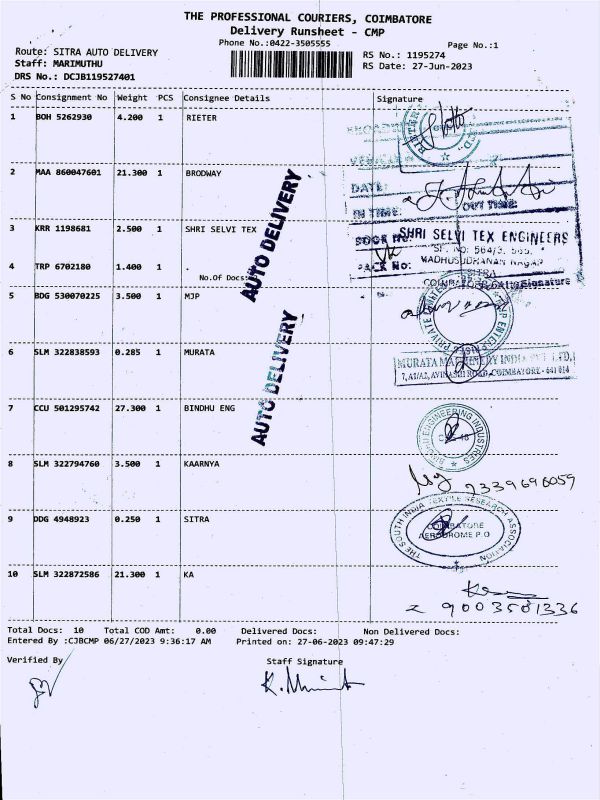 THE PROFESSIONAL COURIERS, COIMBATORE
Delivery Runsheet - CMP
Phone No.:0422-3505555
Page No.:1
Route: SITRA AUTO DELIVERY
RS No.: 1195274
Staff: MARIMUTHU
RS Date: 27-Jun-2023
DRS No.: DCJB119527401
S No Consignment No Weight PCS Consignee Details Signature
1 BOH 5262930 4.200 1 RIETER
2 MAA 860047601 21.300 1 BRODWAY
DATE:
IN TIME: OUT TIME:
AUTO DELIVERY
3 KRR 1198681 2.500 1 SHRI SELVI TEX
SHRI SELVI TEX ENGINEERS
SF. NO: 564/3, 565,
MADHUSUDHANAN NAGAR
SITRA
4 TRP 6702180 1.400 1
No.Of Docs:
Signature
5 BDG 530070225 3.500 1 MJP
AUTO DELIVERY
6 SLM 322838593 0.285 1 MURATA
MURATA MACHINERY INDIA PVT. LTD.,
7, A1/A2, AVINASHI ROAD, COIMBATORE - 641 014
7 CCU 501295742 27.300 1 BINDHU ENG
BINDHU ENGINEERING INDUSTRIES
8 SLM 322794760 3.500 1 KAARNYA
9339696059
9 DDG 4948923 0.250 1 SITRA
THE SOUTH INDIA TEXTILE RESEARCH ASSOCIATION
COIMBATORE
AERODROME P.O
10 SLM 322872586 21.300 1 KA
9003581336
Total Docs: 10 Total COD Amt: 0.00 Delivered Docs: Non Delivered Docs:
Entered By :CJBCMP 06/27/2023 9:36:17 AM Printed on: 27-06-2023 09:47:29
Verified By Staff Signature